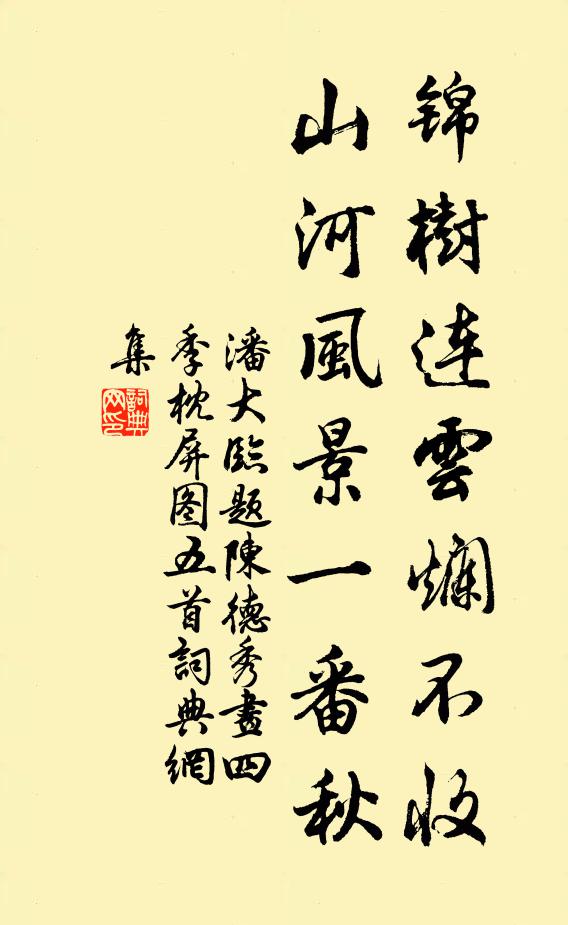 锦樹連雲爛不收
山河風景一番秋
潘大臨題陳德秀畫四
季枕屏图五首詞典網
集
詞典
网印